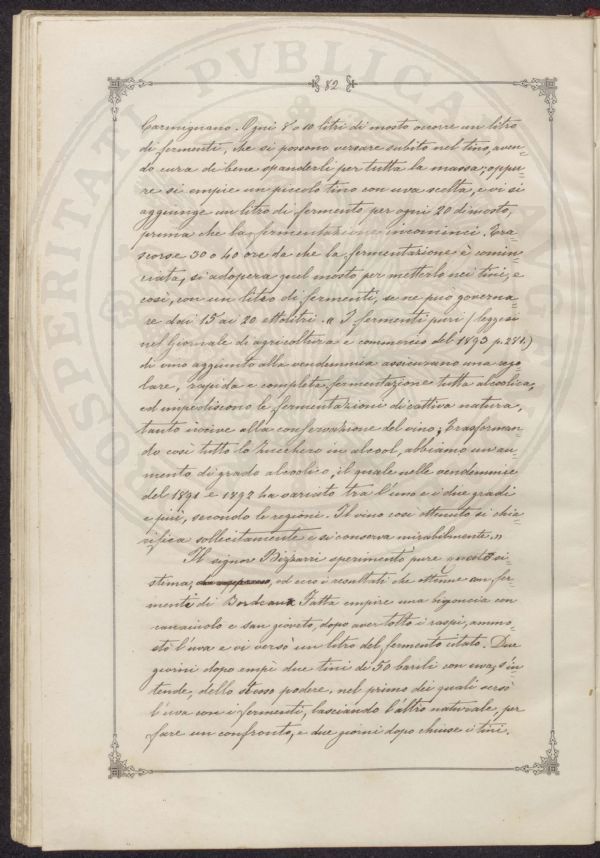 82
Carmignano. Ogni 8 o 10 litri di mosto occorre un litro
di fermenti, che si possono versare subito nel tino, aven=
do cura di bene spanderli per tutta la massa; oppu=
re si empie un piccolo tino con uva scelta, e vi si
aggiunge un litro di fermento per ogni 20 di mosto,
prima che la fermentazione incominci. Tra=
scorse 30 o 40 ore da che la fermentazione è comin=
ciata, si adopera quel mosto per metterlo nei tini, e
così, con un litro di fermenti, se ne può governa=
re dai 15 ai 20 ettolitri. « I fermenti puri (leggesi
nel Giornale di agricoltura e commercio del 1893 p. 281.)
di vino aggiunto alla vendemmia assicurano una rego=
lare, rapida e completa fermentazione tutta alcoolica,
ed impediscono le fermentazioni di cattiva natura,
tanto nocive alla conservazione del vino; Trasforman=
do così tutto lo zucchero in alcool, abbiamo un au=
mento di grado alcoolico, il quale nelle vendemmie
del 1891 e 1892 ha variato tra l'uno e i due gradi
e più, secondo le regioni. Il vino così ottenuto si chia=
rifica sollecitamente e si conserva mirabilmente. »
Il signor Bizzarri sperimentò pure questo si=
stema, ed ecco i resultati che ottenne con fer=
menti di Bordeaux Fatta empire una bigoncia con
canaiuolo e san gioveto, dopo aver tolto i raspi, ammo=
stò l'uva e vi versò un litro del fermento citato. Due
giorni dopo empì due tini di 50 barili con uva, s'in=
tende, dello stesso podere, nel primo dei quali versò
l'uva con i fermenti, lasciando l'altro naturale, per
fare un confronto, e due giorni dopo chiuse i tini.
PROSPERITATI PVBLICAE